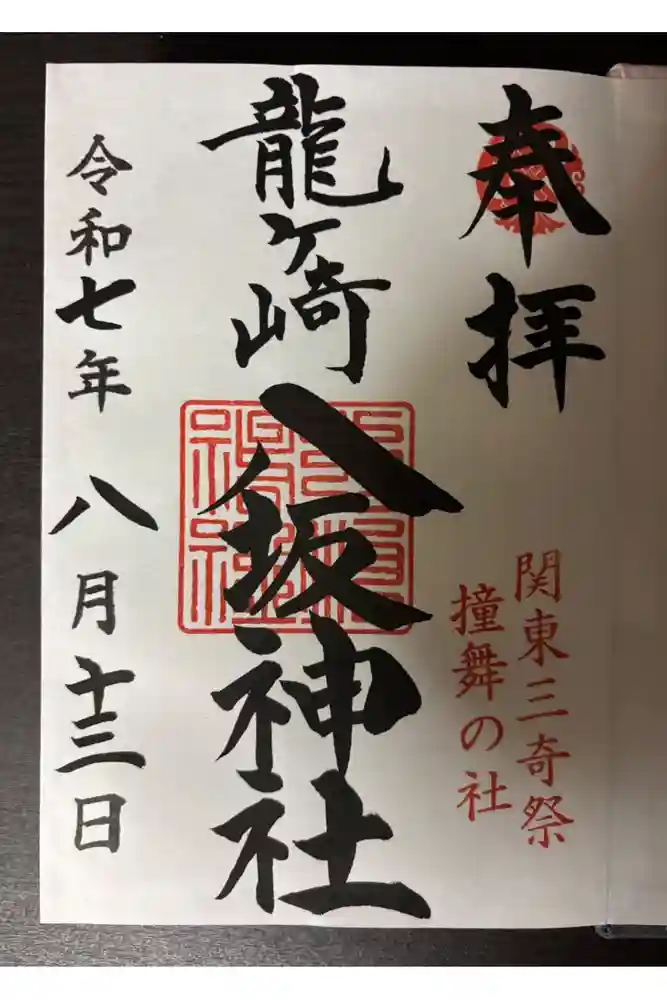 奉拝
関東三奇祭
撞舞の社
龍ヶ崎
八坂神社
令和七年 八月十三日